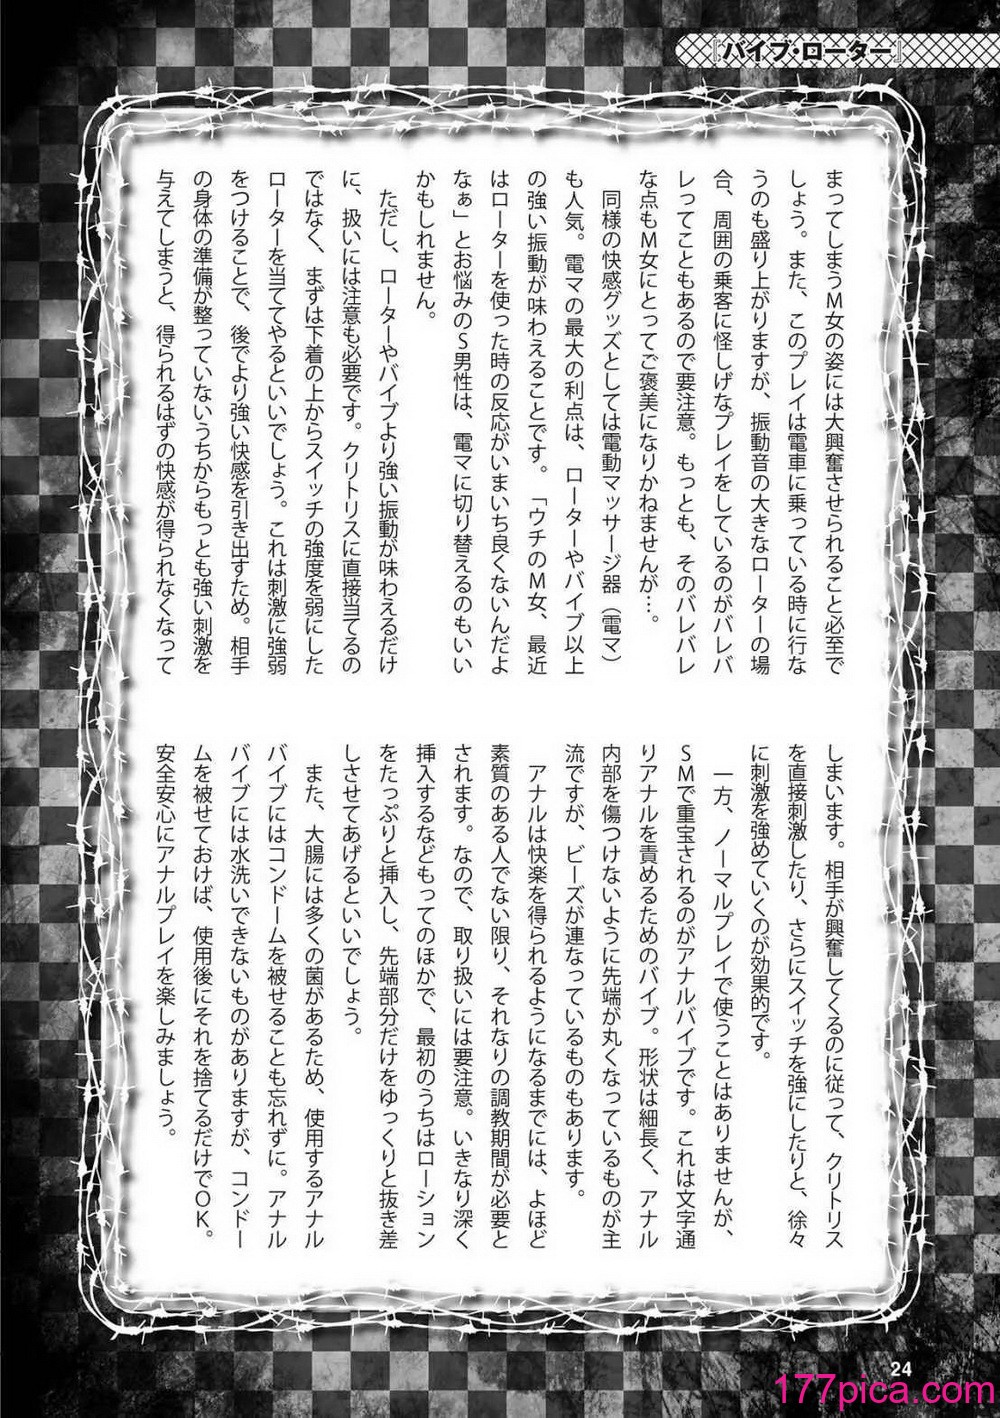 『バイブ・ローター』
まってしまうM女の姿には大興奮させられること必至で
しょう。また、このプレイは電車に乗っている時に行な
うのも盛り上がりますが、振動音の大きなローターの場
合、周囲の乗客に怪しげなプレイをしているのがバレバ
レってこともあるので要注意。もっとも、そのバレバレ
な点もM女にとってご褒美になりかねませんが…。
同様の快感グッズとしては電動マッサージ器（電マ）
も人気。電マの最大の利点は、ローターやバイブ以上
の強い振動が味わえることです。「ウチのM女、最近
はローターを使った時の反応がいまいち良くないんだよ
なぁ」とお悩みのS男性は、電マに切り替えるのもいい
かもしれません。
ただし、ローターやバイブより強い振動が味わえるだけ
に、扱いには注意も必要です。クリトリスに直接当てるの
ではなく、まずは下着の上からスイッチの強度を弱にした
ローターを当ててやるといいでしょう。これは刺激に強弱
をつけることで、後でより強い快感を引き出すため。相手
の身体の準備が整っていないうちからもっとも強い刺激を
与えてしまうと、得られるはずの快感が得られなくなって
しまいます。相手が興奮してくるのに従って、クリトリス
を直接刺激したり、さらにスイッチを強にしたりと、徐々
に刺激を強めていくのが効果的です。
一方、ノーマルプレイで使うことはありませんが、
SMで重宝されるのがアナルバイブです。これは文字通
りアナルを責めるためのバイブ。形状は細長く、アナル
内部を傷つけないように先端が丸くなっているものが主
流ですが、ビーズが連なっているものもあります。
アナルは快楽を得られるようになるまでには、よほど
素質のある人でない限り、それなりの調教期間が必要と
されます。なので、取り扱いには要注意。いきなり深く
挿入するなどもってのほかで、最初のうちはローション
をたっぷりと挿入し、先端部分だけをゆっくりと抜き差
しさせてあげるといいでしょう。
また、大腸には多くの菌があるため、使用するアナル
バイブにはコンドームを被せることも忘れずに。アナル
バイブには水洗いできないものがありますが、コンドー
ムを被せておけば、使用後にそれを捨てるだけでOK。
安全安心にアナルプレイを楽しみましょう。
24
177pica.com